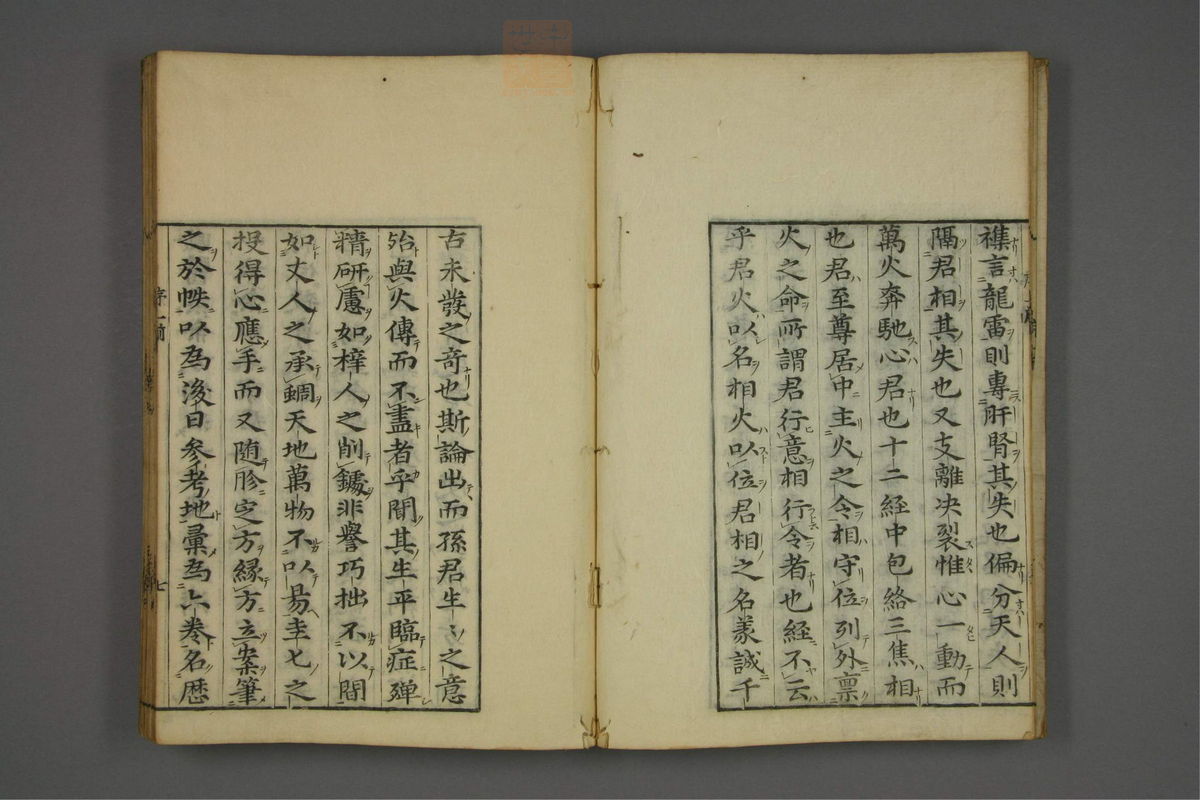 襍言龍雷則專肝腎其失也偏分天人則
隔君相其失也又支離决裂惟心一動而
萬火奔馳心君也十二経中包絡三焦相
也君至尊居中主火之令相守位列外禀
火之命所謂君行意相行令者也経不云
乎君火以名相火以位君相之名義誠千
古未發之奇也斯論出而孫君生〻之意
殆與火傳而不盡者乎聞其生平臨症殫
精研慮如梓人之削鐻非譽巧拙不以間
如丈人之承蜩天地萬物不以易圭七之
投得心應手而又随胗定方縁方立案筆
之於帙以為後日参考地彙為六巻名歴
序
七